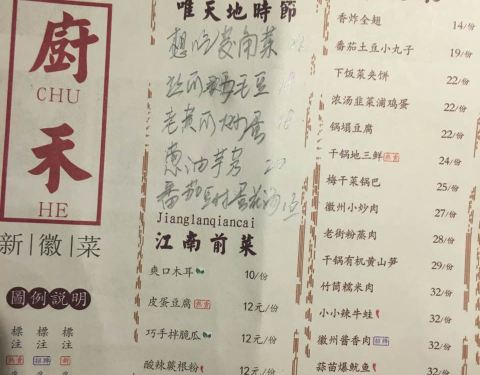 廚
CHU
禾
HE
新|徽|菜
圖例說明
標注
標注
標注
唯天地時節
老黄瓜炒蛋
葱油芋艿
Jianglanqiancai
江南前菜
爽口木耳 10/份
皮蛋豆腐 12元/份
巧手拌脆瓜 12元/份
酸辣蕨根粉 12元/份
香炸全翅 14/份
番茄土豆小丸子 19/份
下饭菜夹饼 22/份
浓汤韭菜浦鸡蛋 22/份
锅塌豆腐 22/份
干锅地三鲜 24/份
梅干菜锅巴 25/份
徽州小炒肉 27/份
老街粉蒸肉 28/份
干锅有机黄山笋 29/份
竹筒糯米肉 32/份
小小辣牛蛙 32/份
徽州酱香肉 招牌 32/份
蒜苗爆鱿鱼 32/份